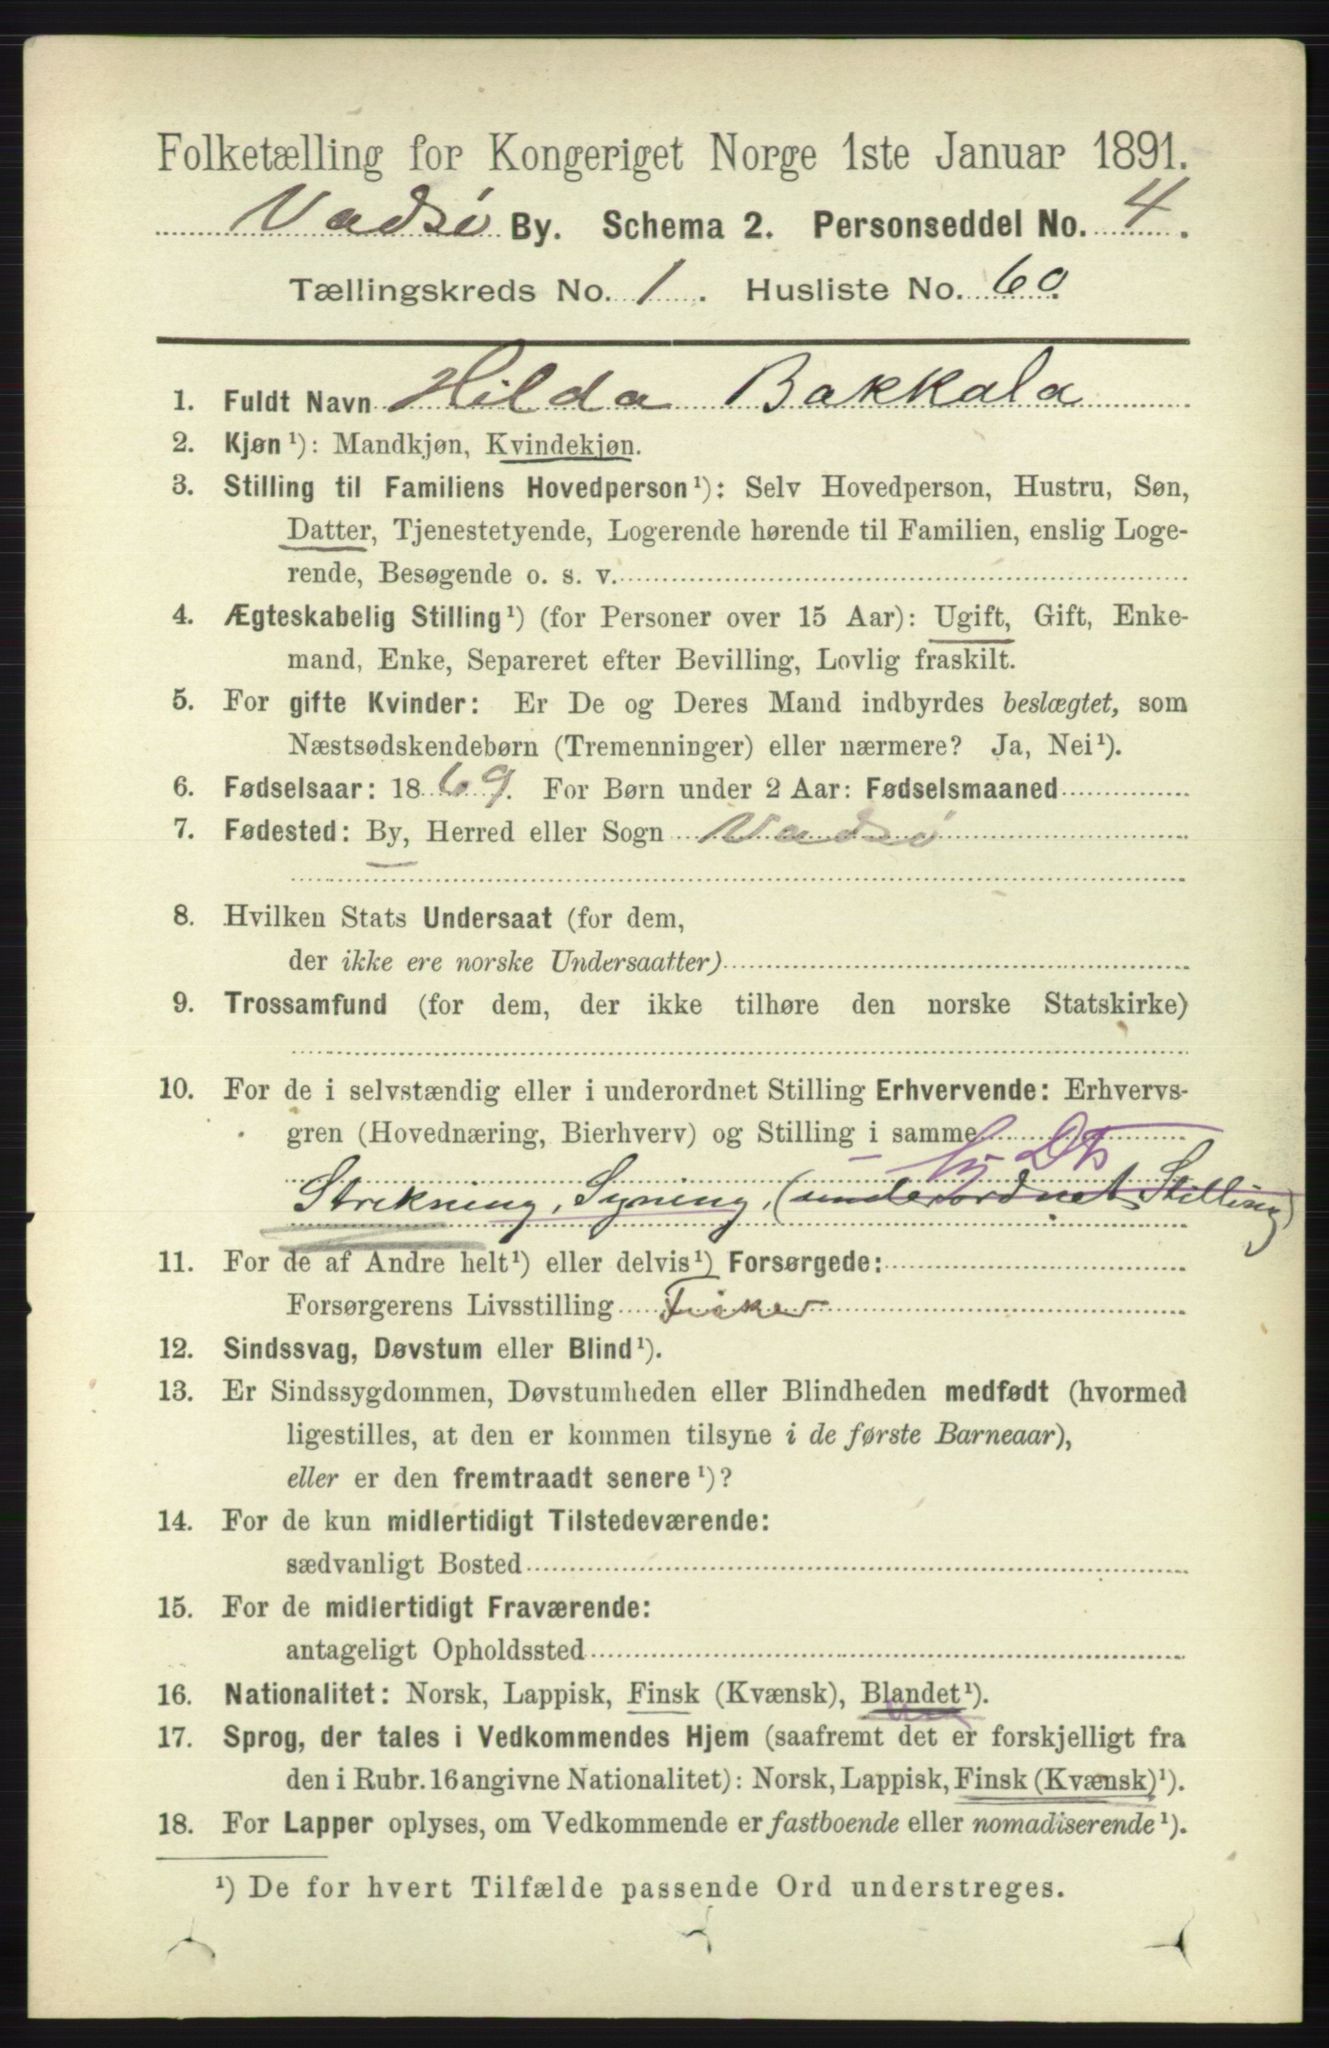 Folketælling for Kongeriget Norge 1ste Januar 1891.
Vadsø By. Schema 2. Personseddel No. 4.
Tællingskreds No. 1. Husliste No. 60.
1. Fuldt Navn Hilda Bakkala
2. Kjøn ¹): Mandkjøn, Kvindekjøn.
3. Stilling til Familiens Hovedperson ¹): Selv Hovedperson, Hustru, Søn,
Datter, Tjenestetyende, Logerende hørende til Familien, enslig Loge-
rende, Besøgende o. s. v.
4. Ægteskabelig Stilling ¹) (for Personer over 15 Aar): Ugift, Gift, Enke-
mand, Enke, Separeret efter Bevilling, Lovlig fraskilt.
5. For gifte Kvinder: Er De og Deres Mand indbyrdes beslægtet, som
Næstsødskendebørn (Tremenninger) eller nærmere? Ja, Nei ¹).
6. Fødselsaar: 1869. For Børn under 2 Aar: Fødselsmaaned
7. Fødested: By, Herred eller Sogn Vadsø
8. Hvilken Stats Undersaat (for dem,
der ikke ere norske Undersaatter)
9. Trossamfund (for dem, der ikke tilhøre den norske Statskirke)
10. For de i selvstændig eller i underordnet Stilling Erhvervende: Erhvervs-
gren (Hovednæring, Bierhverv) og Stilling i samme
Strikning, Syning, (underordnet Stilling)
11. For de af Andre helt ¹) eller delvis ¹) Forsørgede:
Forsørgerens Livsstilling Fisker
12. Sindssvag, Døvstum eller Blind ¹).
13. Er Sindssygdommen, Døvstumheden eller Blindheden medfødt (hvormed
ligestilles, at den er kommen tilsyne i de første Barneaar),
eller er den fremtraadt senere ¹)?
14. For de kun midlertidigt Tilstedeværende:
sædvanligt Bosted
15. For de midlertidigt Fraværende:
antageligt Opholdssted
16. Nationalitet: Norsk, Lappisk, Finsk (Kvænsk), Blandet ¹).
17. Sprog, der tales i Vedkommendes Hjem (saafremt det er forskjelligt fra
den i Rubr. 16 angivne Nationalitet): Norsk, Lappisk, Finsk (Kvænsk) ¹).
18. For Lapper oplyses, om Vedkommende er fastboende eller nomadiserende ¹).
¹) De for hvert Tilfælde passende Ord understreges.